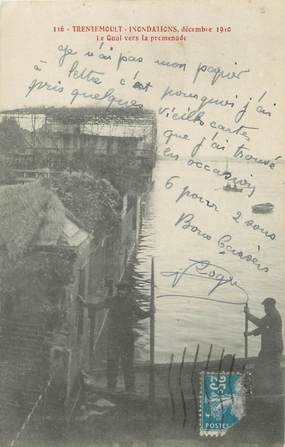 116 - TRENTEMOULT - INONDATIONS, décembre 1910
Le Quai vers la promenade
Je n'ai pas mon papier
à lettre c'est pourquoi j'ai
pris quelques vieilles cartes
que j'ai trouvé
en occasion
6 pour 2 sous
Bons baisers
POSTES